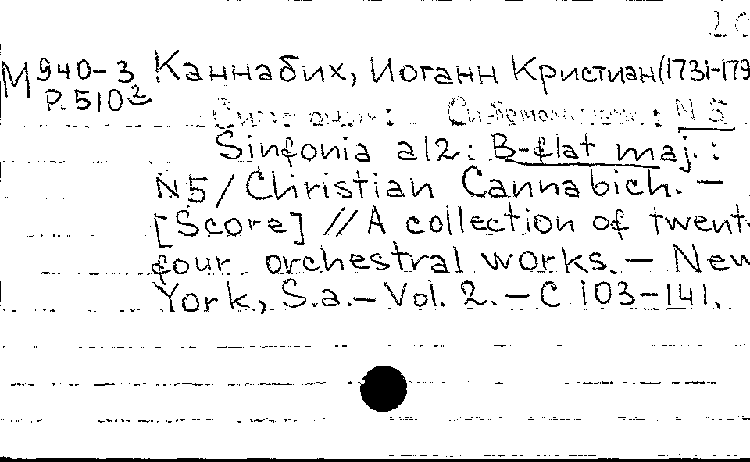 20
М 940-3 Каннабих, Иоганн Кристиан (1731-179
Р.510² 
Симфонии: Си-бемоль мажор: N 5
Sinfonia a 12: B-flat maj.:
N5/Christian Cannabich. —
[Score] // A collection of twent-
four orchestral works. — New
York, S.a. — Vol. 2. — С 103-141.